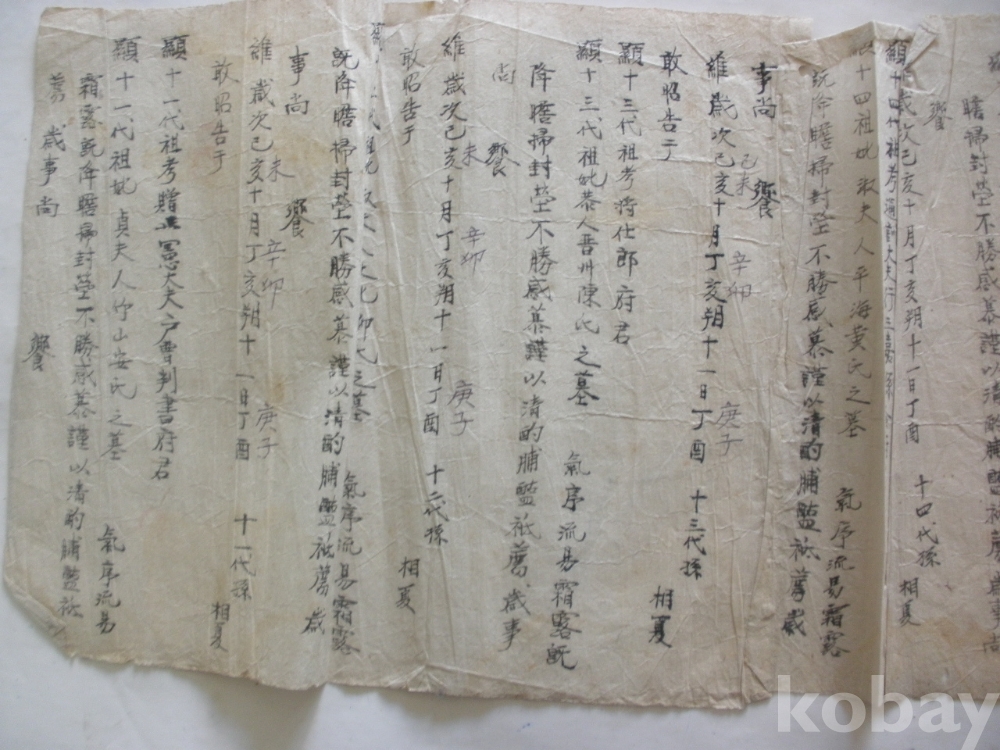 饗
瞻掃封塋不勝感慕謹以清酌脯醢祗薦歲事尚
歲次己亥十月丁亥朔十一日丁酉 十四代孫 相夏
顯十四代祖考通
十四祖妣 淑夫人平海黃氏之墓 氣序流易霜露
既降瞻掃封塋不勝感慕謹以清酌脯醢祗薦歲
事尚 饗
維歲次己亥十月丁亥朔十一日丁酉 十三代孫 相夏
己未 辛卯 庚子
敢昭告于
顯十三代祖考將仕郎府君
顯十三代祖妣恭人晋州陳氏之墓 氣序流易霜露既
降瞻掃封塋不勝感慕謹以清酌脯醢祗薦歲事
尚 饗
維歲次己亥十月丁亥朔十一日丁酉 十二代孫 相夏
未 辛卯 庚子
敢昭告于
之墓 氣序流易霜露
既降瞻掃封塋不勝感慕謹以清酌脯醢祗薦歲
事尚 饗
維歲次己亥十月丁亥朔十一日丁酉 十一代孫 相夏
未 辛卯 庚子
敢昭告于
顯十一代祖考贈 憲大夫戶曹判書府君
顯十一代祖妣貞夫人竹山安氏之墓 氣序流易
霜露既降瞻掃封塋不勝感慕謹以清酌脯醢祗
薦歲事尚 饗
kobay